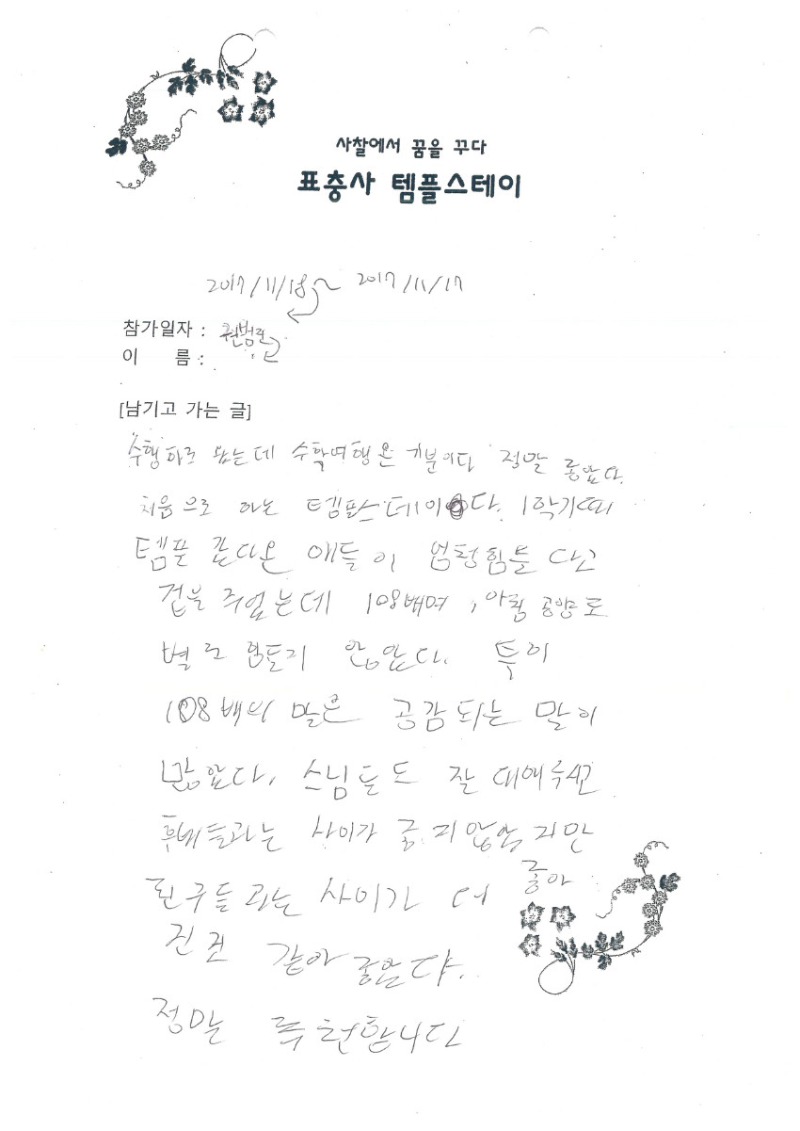 사찰에서 꿈을 꾸다
표충사 템플스테이
2017/11/18 ~ 2017/11/17
참가일자 :
이 름 : 권범준
[남기고 가는 글]
수행하로 왔는데 수학여행온 기분이다 정말 좋았다.
처음으로 하는 템플스테이다. 1학기때
템플 갔다온 애들이 엄청힘들다고
겁을 주었는데 108배며, 아침 공양도
별로 힘들지 않았다. 특이
108배의 말은 공감되는 말이
많았다. 스님들도 잘 대해주셨고
후배들과는 사이가 좋지않았지만
친구들과는 사이가 더 좋아
진것 같아 좋았다.
정말 추천합니다